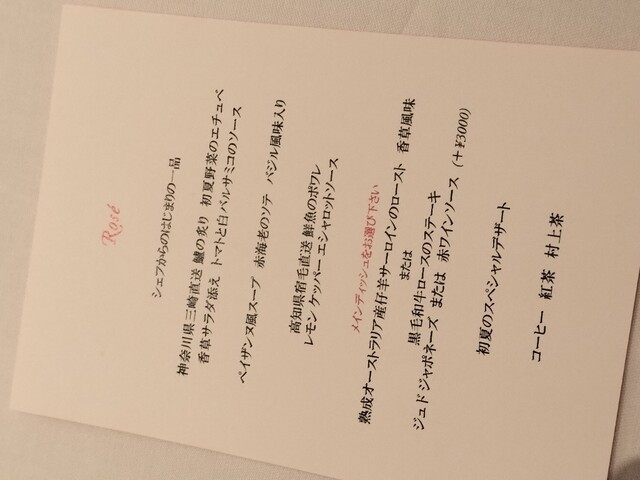 Rosé
シェフからのはじまりの一品
神奈川県三崎直送 鱸の炙り 初夏野菜のエチュベ
香草サラダ添え トマトと白バルサミコのソース
ペイザンヌ風スープ 赤海老のソテ バジル風味入り
高知県宿毛直送 鮮魚のポワレ
レモン ケッパー エシャロットソース
メインディッシュをお選び下さい
熟成オーストラリア産仔羊サーロインのロースト 香草風味
または
黒毛和牛ロースのステーキ
ジュド ジャポネーズ または 赤ワインソース (+¥3000)
初夏のスペシャルデザート
コーヒー 紅茶 村上茶